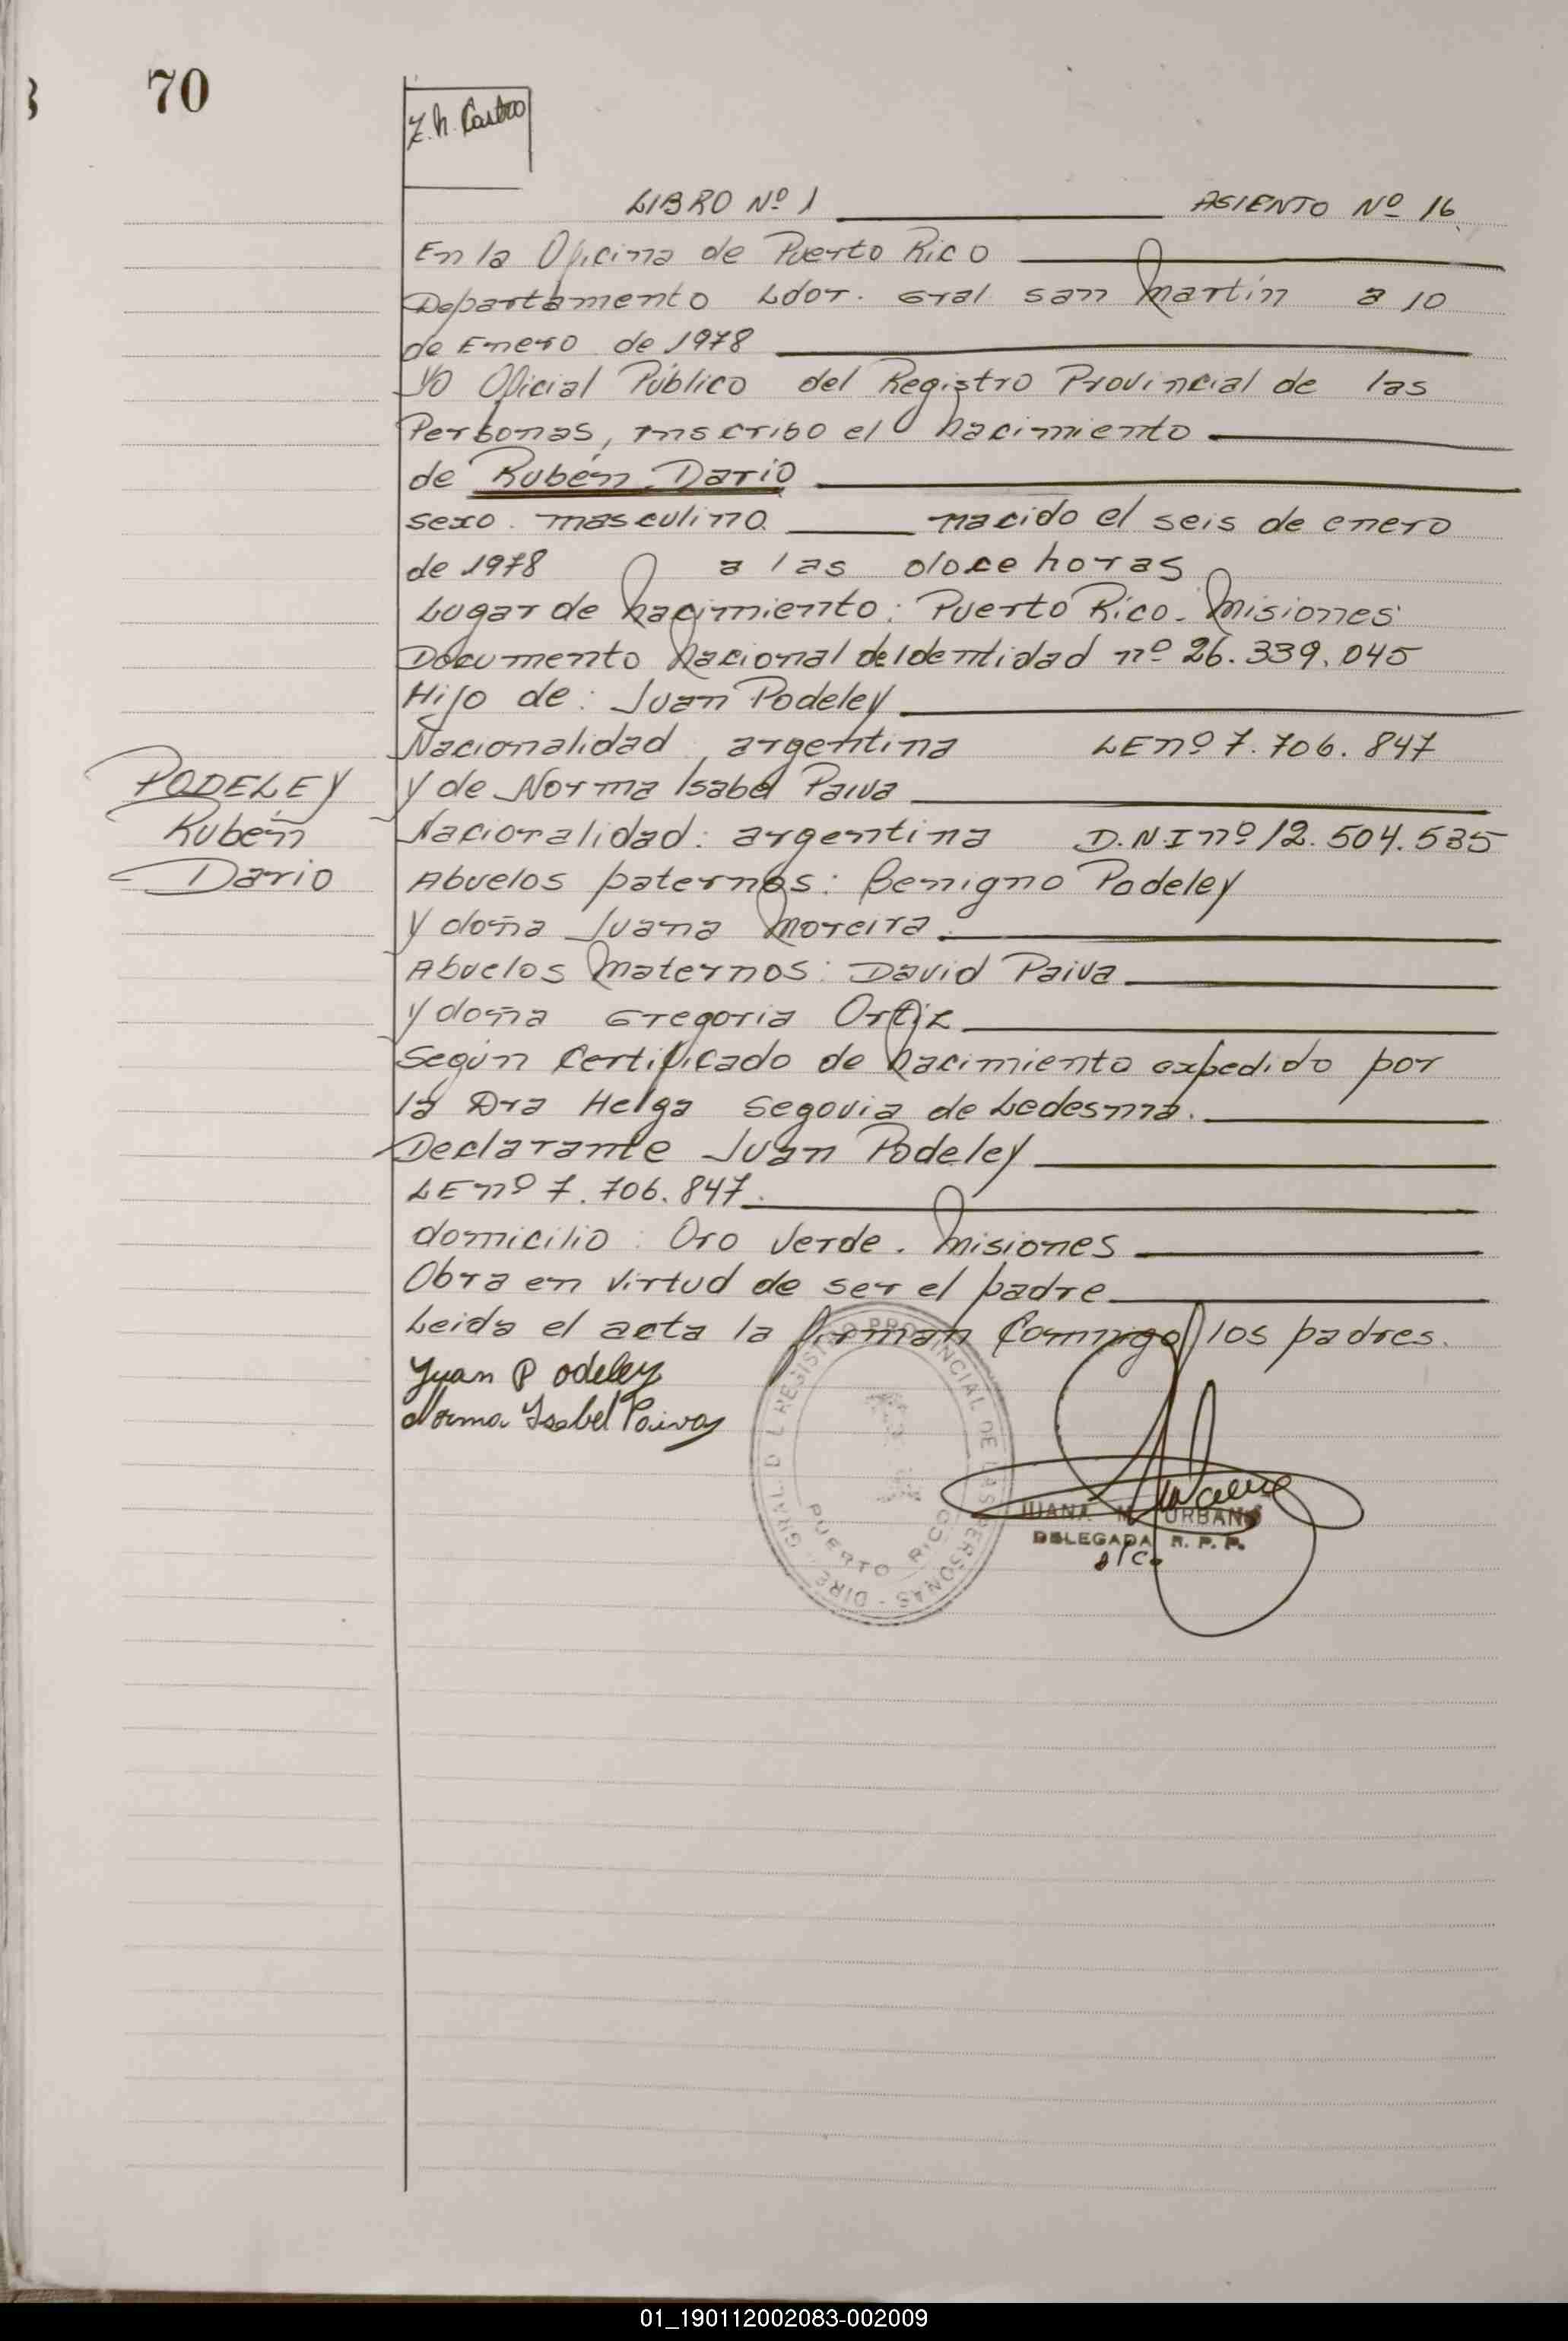 70
Z. h. Castro
LIBRO Nº 1 ASIENTO Nº 16
En la Oficina de Puerto Rico
Departamento Ldor. Gral San Martín a 10
de Enero de 1978
Yo Oficial Público del Registro Provincial de las
Personas, inscribo el nacimiento
de Rubén Dario
sexo masculino nacido el seis de enero
de 1978 a las doce horas
Lugar de nacimiento: Puerto Rico. Misiones
Documento Nacional de Identidad nº 26.339.045
Hijo de: Juan Podeley
Nacionalidad argentina LE nº 7.706.847
y de Norma Isabel Paiva
Nacionalidad: argentina D.N.I nº 12.504.535
Abuelos paternos: Benigno Podeley
y doña Juana Moreira
Abuelos Maternos: David Paiva
y doña Gregoria Ortiz
Según Certificado de nacimiento expedido por
la Dra Helga Segovia de Ledesma.
Declarante Juan Podeley
LE nº 7.706.847
domicilio: Oro Verde. Misiones
Obra en virtud de ser el padre
Leida el acta la firman Conmigo los padres.
PODELEY
Rubén
Dario
Juan Podeley
Norma Ysabel Paiva
DIRE. GRAL. D L REGISTRO PROVINCIAL DE LAS PERSONAS -
PUERTO RICO
JUANA M. URBANO
DELEGADA R. P. P.
a/c.
01_190112002083-002009